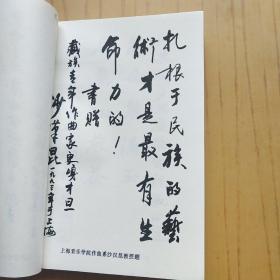 扎根于民族的藝
術才是最有生
命力的！
書贈
藏族青年作曲家更嘎才旦
沙汉昆
一九九三年于上海
上海音乐学院作曲系沙汉昆教授题